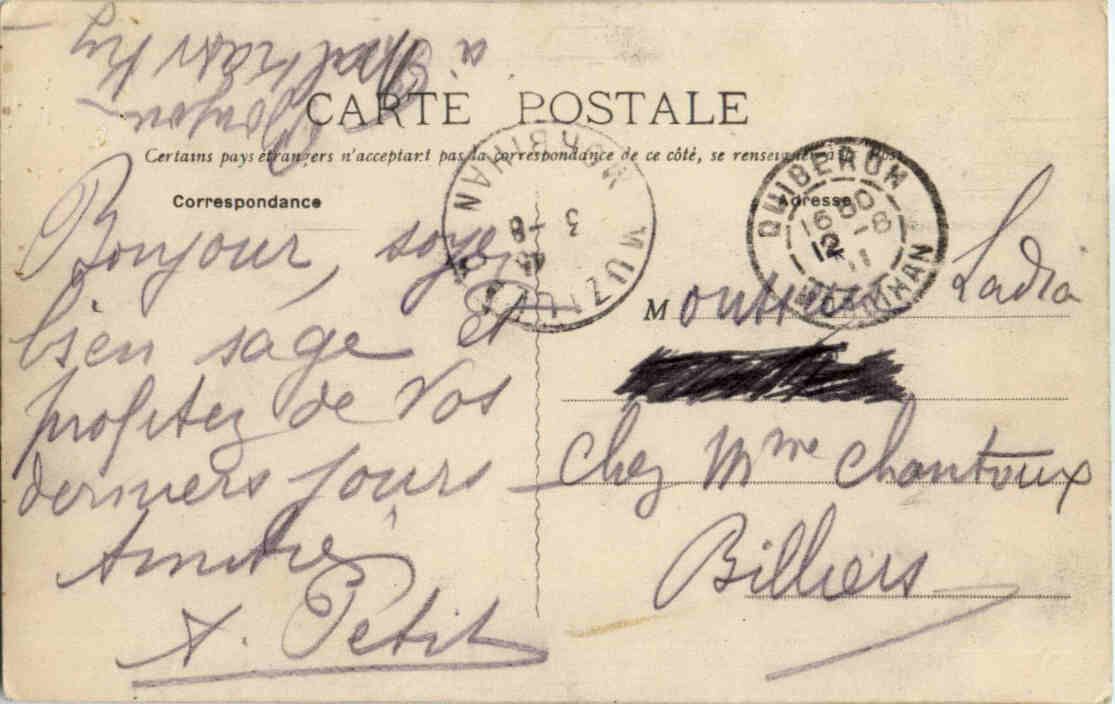 Bonjour
à
CARTE POSTALE
Certains pays étrangers n'acceptant pas la correspondance de ce côté, se renseigner à la Poste
Correspondance
Adresse
MUZILLAC
MORBIHAN
3 -8
QUIBERON
16 30
12 -8
11
MORBIHAN
Bonjour, soyez
bien sage et
profitez de vos
derniers jours
Amitiés
A. Petit
Monsieur Ladia
chez Mme chantoux
Billiers